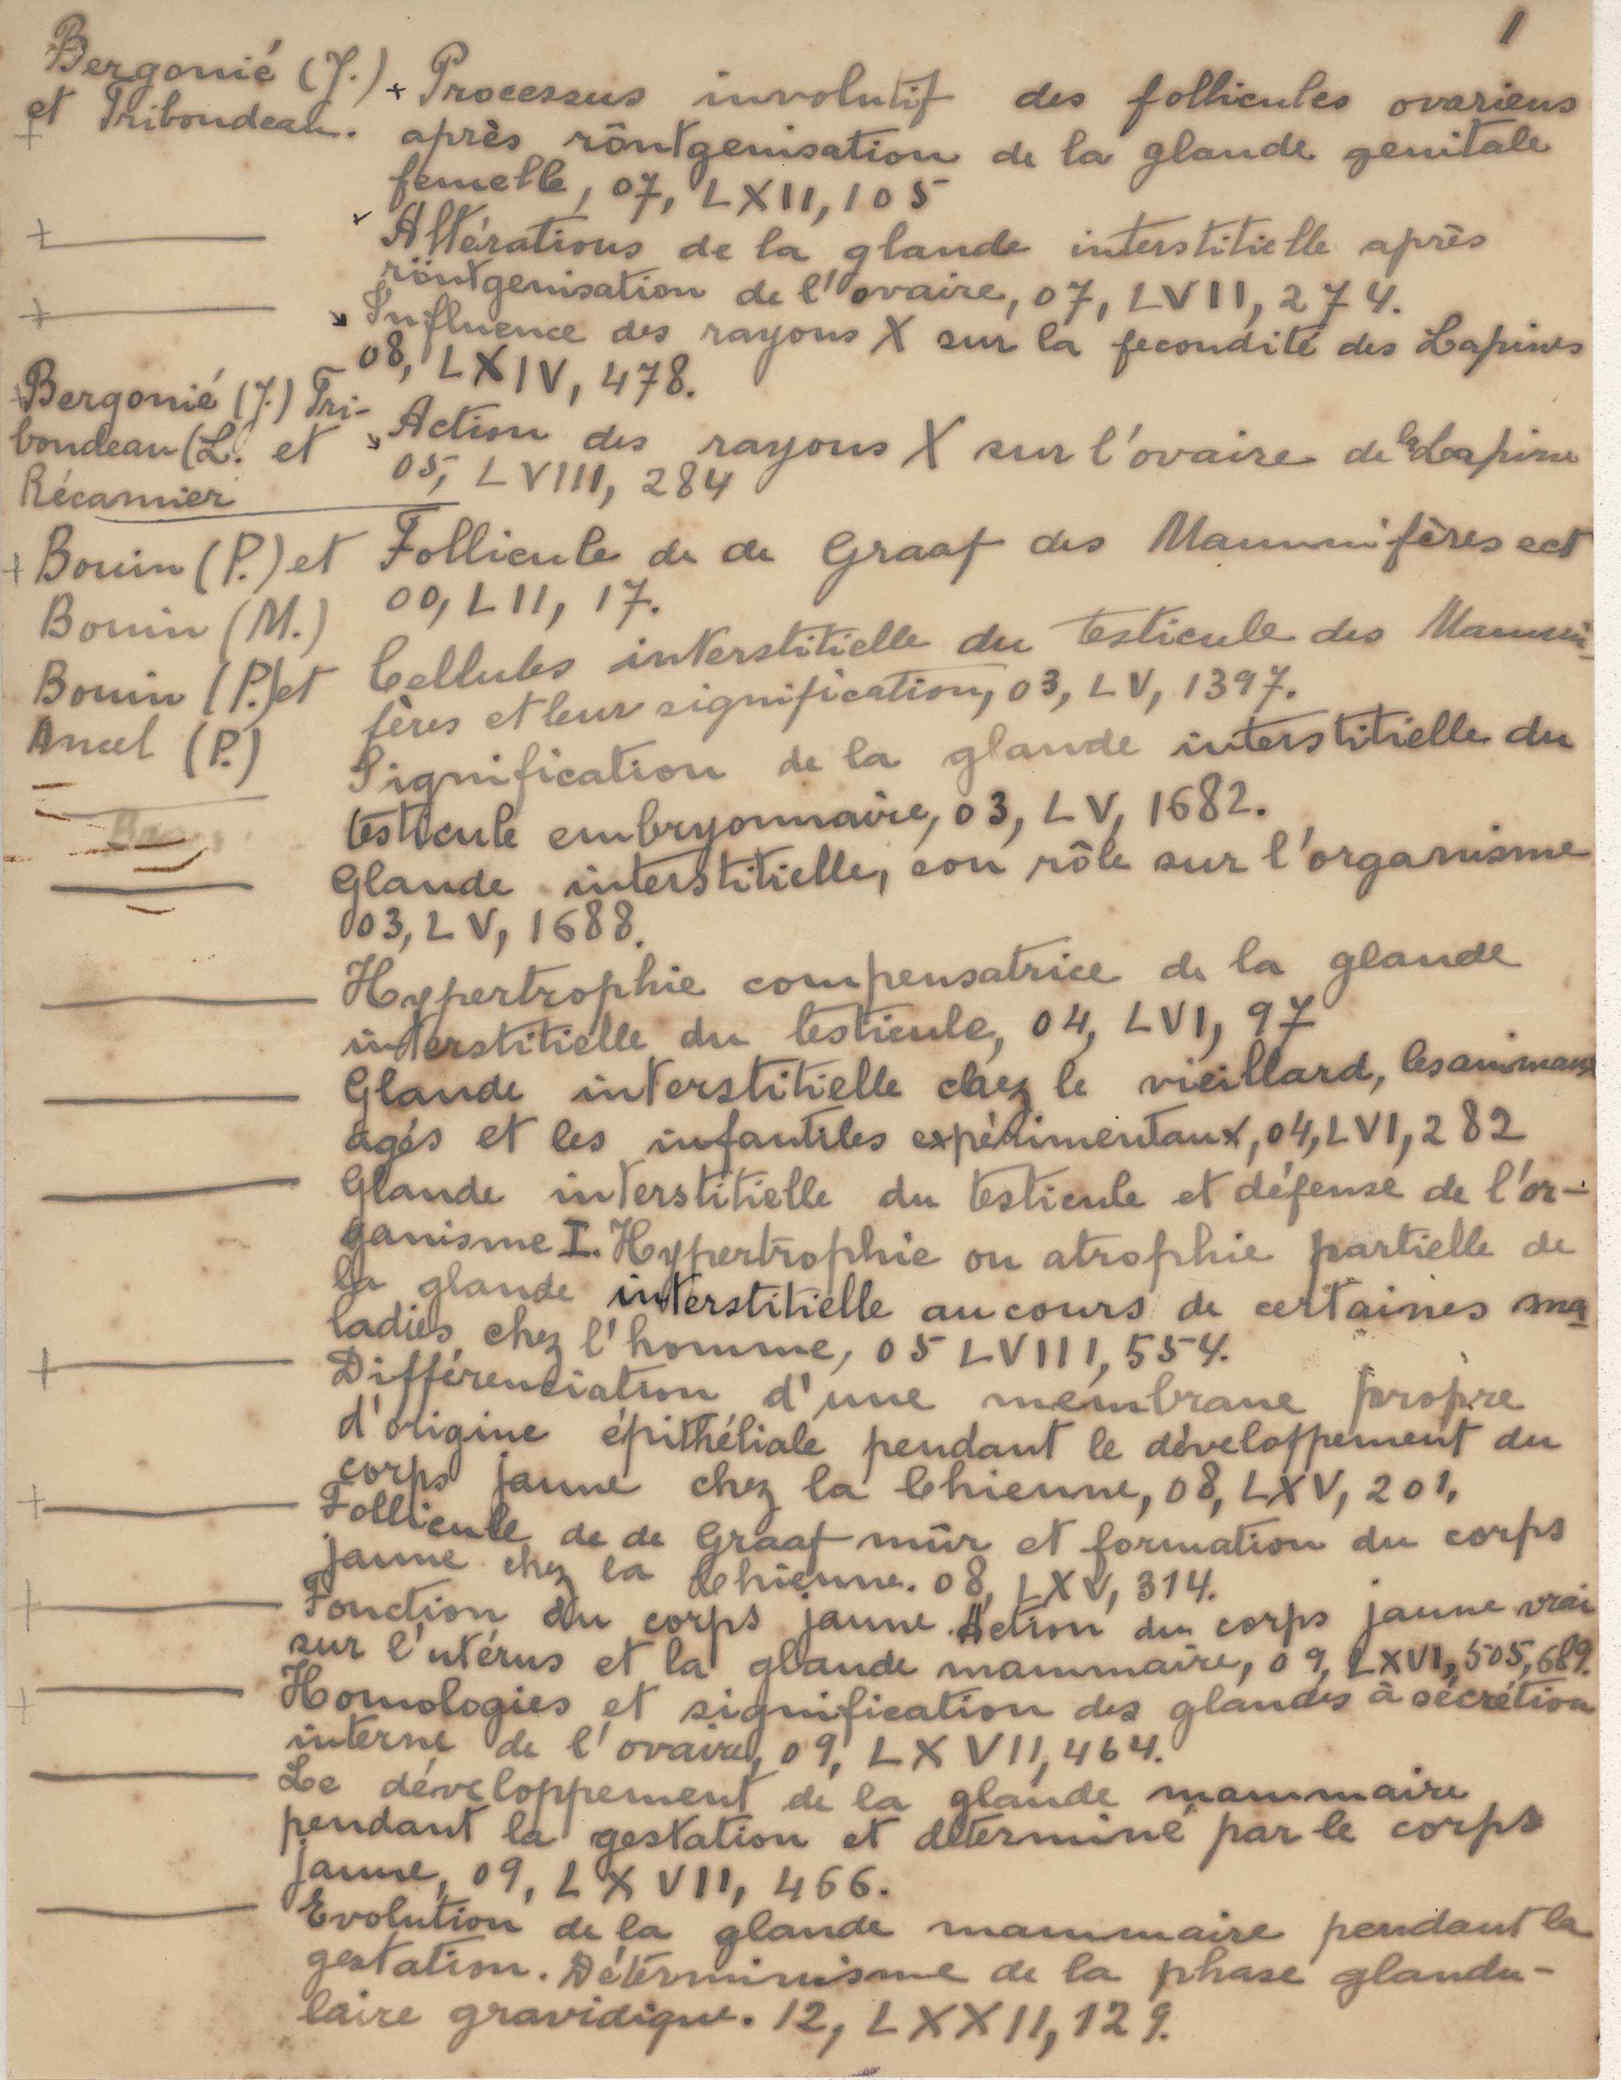 1
Bergonié (J.) + Processus involutif des follicules ovariens
et Tribondeau. après röntgenisation de la glande genitale
femelle, 07, LXII, 105
Altérations de la glande interstitielle après
röntgenisation de l'ovaire, 07, LVII, 274.
Influence des rayons X sur la fecondité des Lapines
08, LXIV, 478.
Bergonié (J.) Tri-
bondeau (L. et Action des rayons X sur l'ovaire de la Lapine
Récamier 05, LVIII, 284
Bouin (P.) et Follicule de de Graaf des Mammifères ect
Bouin (M.) 00, LII, 17.
Bouin (P.) et Cellules interstitielle du testicule des Mammi-
Ancel (P.) fères et leur signification, 03, LV, 1397.
Signification de la glande interstitielle du
testicule embryonnaire, 03, LV, 1682.
Glande interstitielle, son rôle sur l'organisme
03, LV, 1688.
Hypertrophie compensatrice de la glande
interstitielle du testicule, 04, LVI, 97
Glande interstitielle chez le vieillard, les animaux
agés et les infantiles expérimentaux, 04, LVI, 282
Glande interstitielle du testicule et défense de l'or-
ganisme I. Hypertrophie ou atrophie partielle de
la glande interstitielle au cours de certaines ma
ladies chez l'homme, 05 LVIII, 554.
Différenciation d'une membrane propre
d'origine épithéliale pendant le développement du
corps jaune chez la Chienne, 08, LXV, 201,
Follicule de de Graaf mûr et formation du corps
jaune chez la Chienne. 08, LXV, 314.
Fonction du corps jaune. Action du corps jaune vrai
sur l'utérus et la glande mammaire, 09, LXVI, 505, 689.
Homologies et signification des glandes à sécrétion
interne de l'ovaire, 09, LXVII, 464.
Le développement de la glande mammaire
pendant la gestation et determiné par le corps
jaune, 09, LXVII, 466.
Evolution de la glande mammaire pendant la
gestation. Déterminisme de la phase glandu-
laire gravidique. 12, LXXII, 129.